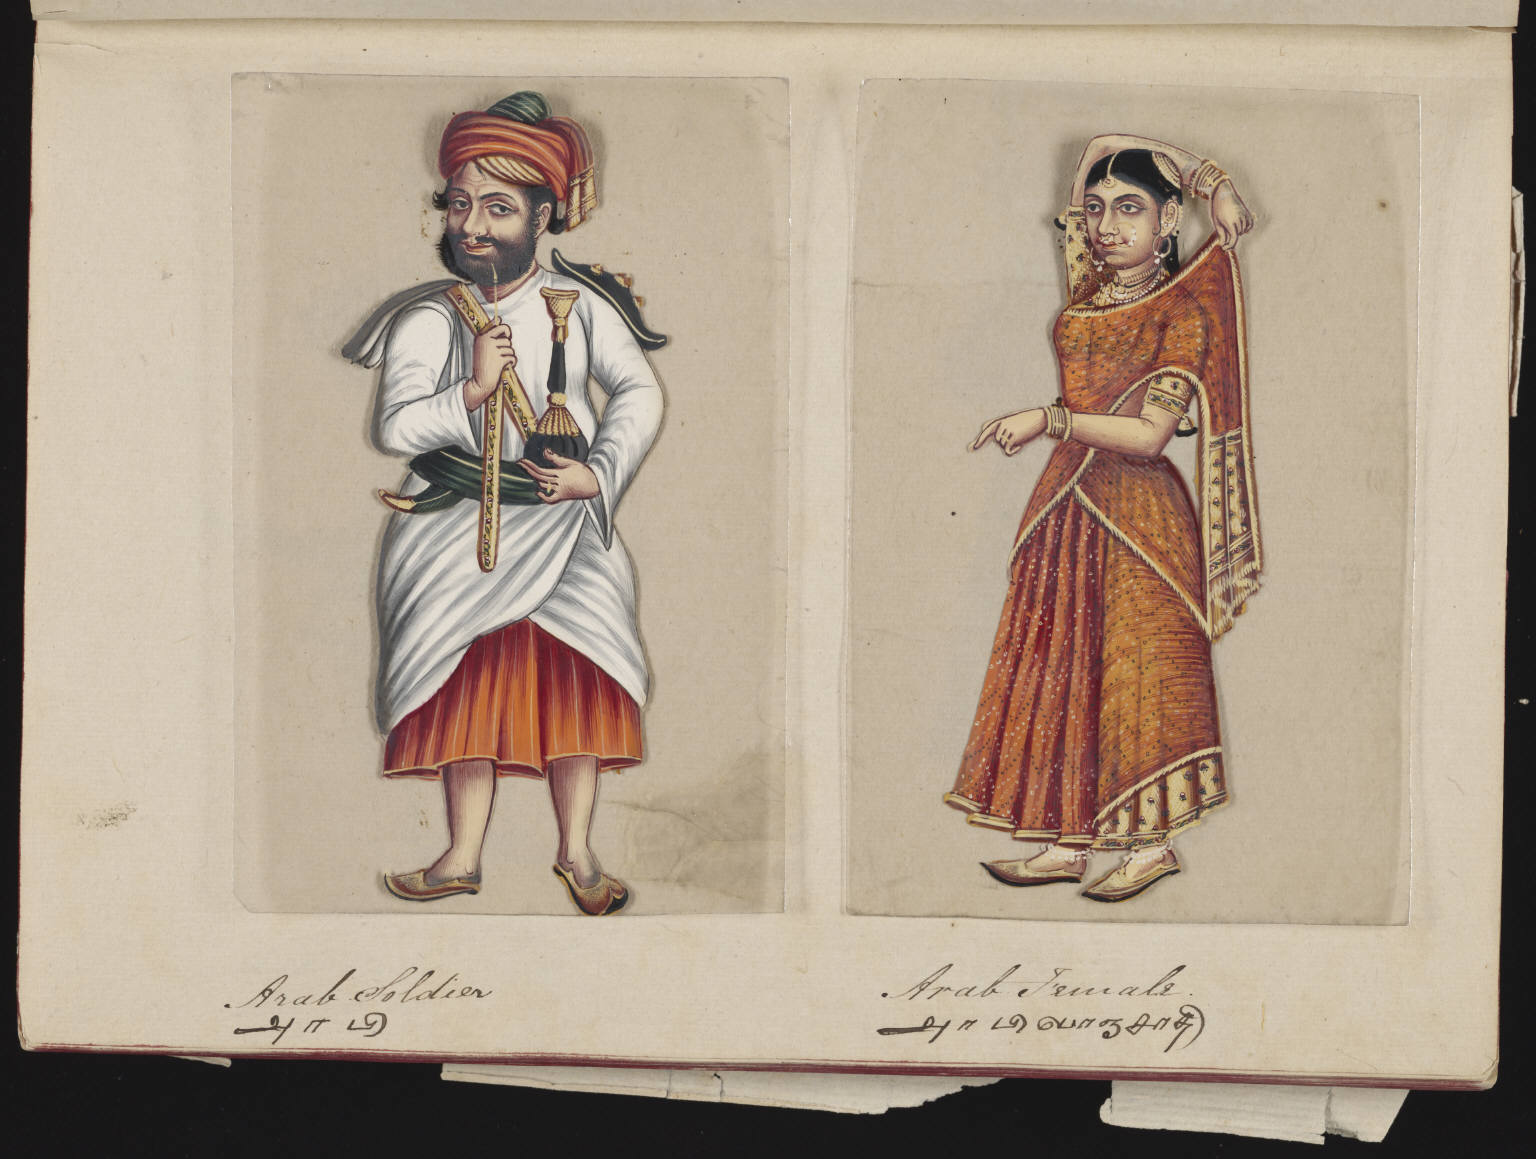 Arab Soldier
அராபி
Arab Female.
அராபி ஸ்திரீ